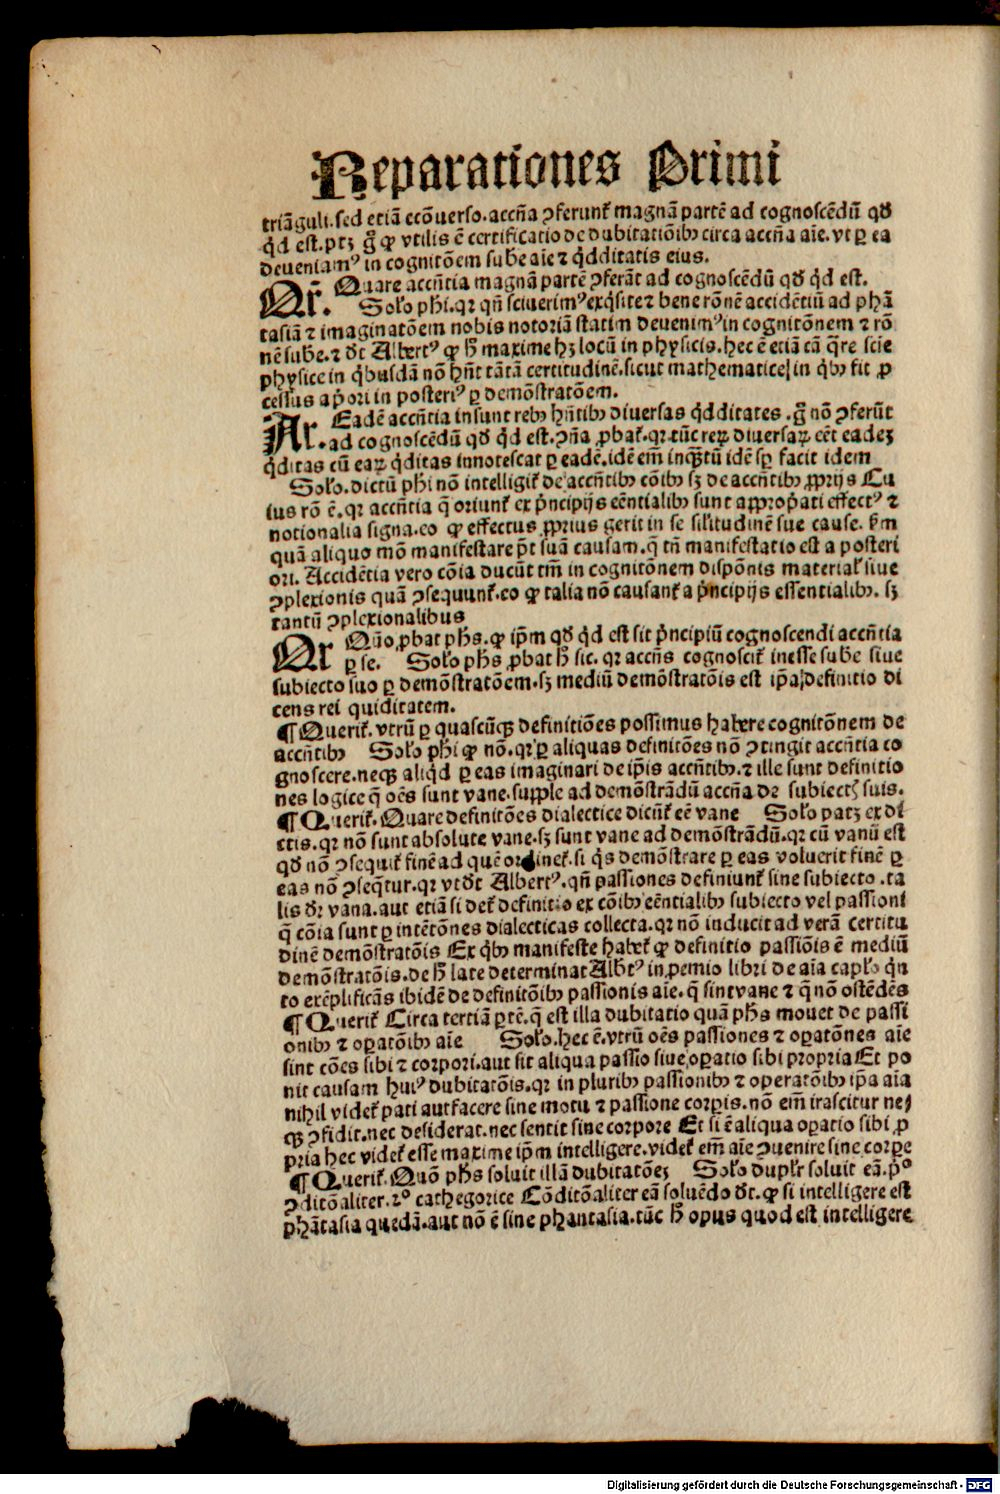 Reparationes Primi
triāguli.sed etiā ecōuerso.accñа ꝯferunt᷑ magnā partē ad cognoscēdū qď
q̇d est.ptꝫ g̃ ꝙ vtilis ē certificatio de dubitatiōibꝰ circa accñа aīe.vt ꝑ ea
deueniamꝰ in cognitōem sube aīe ⁊ q̇dditatis eius.
Qr̃. Quare accñtia magnā partē ꝯferāt ad cognoscēdū qď q̇d est.
Solo phi.qꝛ qñ sciuerimꝰ exq̇site ⁊ bene rōnē accidētiū ad phā
tasiā ⁊ imaginatōem nobis notoriā statim deuenimꝰ in cognitōnem ⁊ rō
nē sube.⁊ dt Albertꝰ ꝙ ħ maxime hꝫ locū in physicis.hec ē etiā cā q̄re scie
physice in q̇busdā nō hñt tātā certitudinē.sicut mathematice| in q̇bꝰ fit ꝓ
cessus a p̍ori in posteriꝰ ꝑ demōstratōem.
Ar. Eadē accñtia insunt rebꝰ hñtibꝰ diuersas q̇dditates .g̃ nō ꝯferūt
ad cognoscēdū qď q̇d est.ꝯña ꝓbat᷑.qꝛ tūc reꝝ diuersaꝝ eēt eadeꝫ
q̇ditas cū eaꝝ q̇ditas innotescat ꝑ eadē.idē em̄ inq̄ꝫtū idē sꝑ facit idem
Solo.dictū phi nō intelligit᷑ de accñtibꝰ cōibꝰ sꝫ de accñtibꝰ ꝓprijs Cu
ius rō ē.qꝛ accñtia q̄ oriunt᷑ ex p̍ncipijs eēntialibꝰ sunt aꝓprop̍ati effectꝰ ⁊
notionalia signa.eo ꝙ effectus ꝓprius gerit in se sil̕itudinē sue cause. ẜm
quā aliquo mō manifestare pt̄ suā causam.q̄ tñ manifestatio est a posteri
ori. Accidētia vero cōia ducūt tm̄ in cognitōnem dispōnis material᷑ siue
ꝯplexionis quā ꝯsequunt᷑.eo ꝙ talia nō causant᷑ a p̍ncipijs essentialibꝰ. sꝫ
tantū ꝯplexionalibus
Qr Quō ꝓbat phs.ꝙ ip̄m qď q̇d est sit p̍ncipiū cognoscendi accñtia
ꝑ se. Solo phs ꝓbat ħ sic. qꝛ accñs cognoscit᷑ inesse sube siue
subiecto suo ꝑ demōstratōem.sꝫ mediū demōstratōis est ip̄a definitio di
cens rei quiditatem.
¶Querit᷑.vtrū ꝑ quascūqꝫ definitiōes possimus habere cognitōnem de
accñtibꝰ Solo phi ꝙ nō.qꝛ ꝑ aliquas definitōes nō ꝯtingit accñtia co
gnoscere.neqꝫ aliq̇d ꝑ eas imaginari de ip̄is accñtibꝰ.⁊ ille sunt definitio
nes logice q̄ oēs sunt vane.supple ad demōstrādū accñа de subiectꝭ suis.
¶Querit᷑.Quare definitōes dialectice dicūt᷑ eē vane Solo patꝫ ex di
ctis.qꝛ nō sunt absolute vane.sꝫ sunt vane ad demōstrādū.qꝛ cū vanū est
qď nō ꝯsequit᷑ finē ad quē ordinet᷑.si q̇s demōstrare ꝑ eas voluerit finē ꝑ
eas nō ꝯseq̇tur.qꝛ vt dt Albertꝰ.qñ passiones definiunt᷑ sine subiecto .ta
lis dr̄ vana.aut etiā si det᷑ definitio ex cōibꝰ eēntialibꝰ subiecto vel passioni
q̄ cōia sunt ꝑ intētōnes dialecticas collecta.qꝛ nō inducit ad verā certitu
dinē demōstratōis Ex q̇bꝰ manifeste habet᷑ ꝙ definitio passiōis ē mediū
demōstratōis.de ħ late determinat Albtꝰ in ꝓemio libri de aīa caplo q̇n
to exēplificās ibidē de definitōibꝰ passionis aīe.q̄ sint vane ⁊ q̄ nō ostēdēs
¶Querit᷑ Circa tertiā ꝑtē.q̄ est illa dubitatio quā phs mouet de passi
onibꝰ ⁊ oꝑatōibꝰ aīe Solo.hec ē.vtrū oēs passiones ⁊ oꝑatōnes aīe
sint cōes sibi ⁊ corpori.aut sit aliqua passio siue oꝑatio sibi propria Et po
nit causam huiꝰ dubitatōis.qꝛ in pluribꝰ passionibꝰ ⁊ operatōibꝰ ip̄a aīa
nihil videt᷑ pati aut facere sine motu ⁊ passione corꝑis.nō em̄ irascitur ne⸗
qꝫ ꝯfidit.nec desiderat.nec sentit sine corpore Et si ē aliqua oꝑatio sibi ꝓ
pria hec videt᷑ esse maxime ip̄m intelligere.videt᷑ em̄ aīe ꝯuenire sine corꝑe
¶Querit᷑.Quō phs soluit illā dubitatōeꝫ Solo duplr soluit eā.p̍º
ꝯditōaliter.2º cathegorice Cōditōaliter eā soluēdo dt.ꝙ si intelligere est
phātasia quedā.aut nō ē sine phantasia.tūc ħ opus quod est intelligere
Digitalisierung gefördert durch die Deutsche Forschungsgemeinschaft - DFG